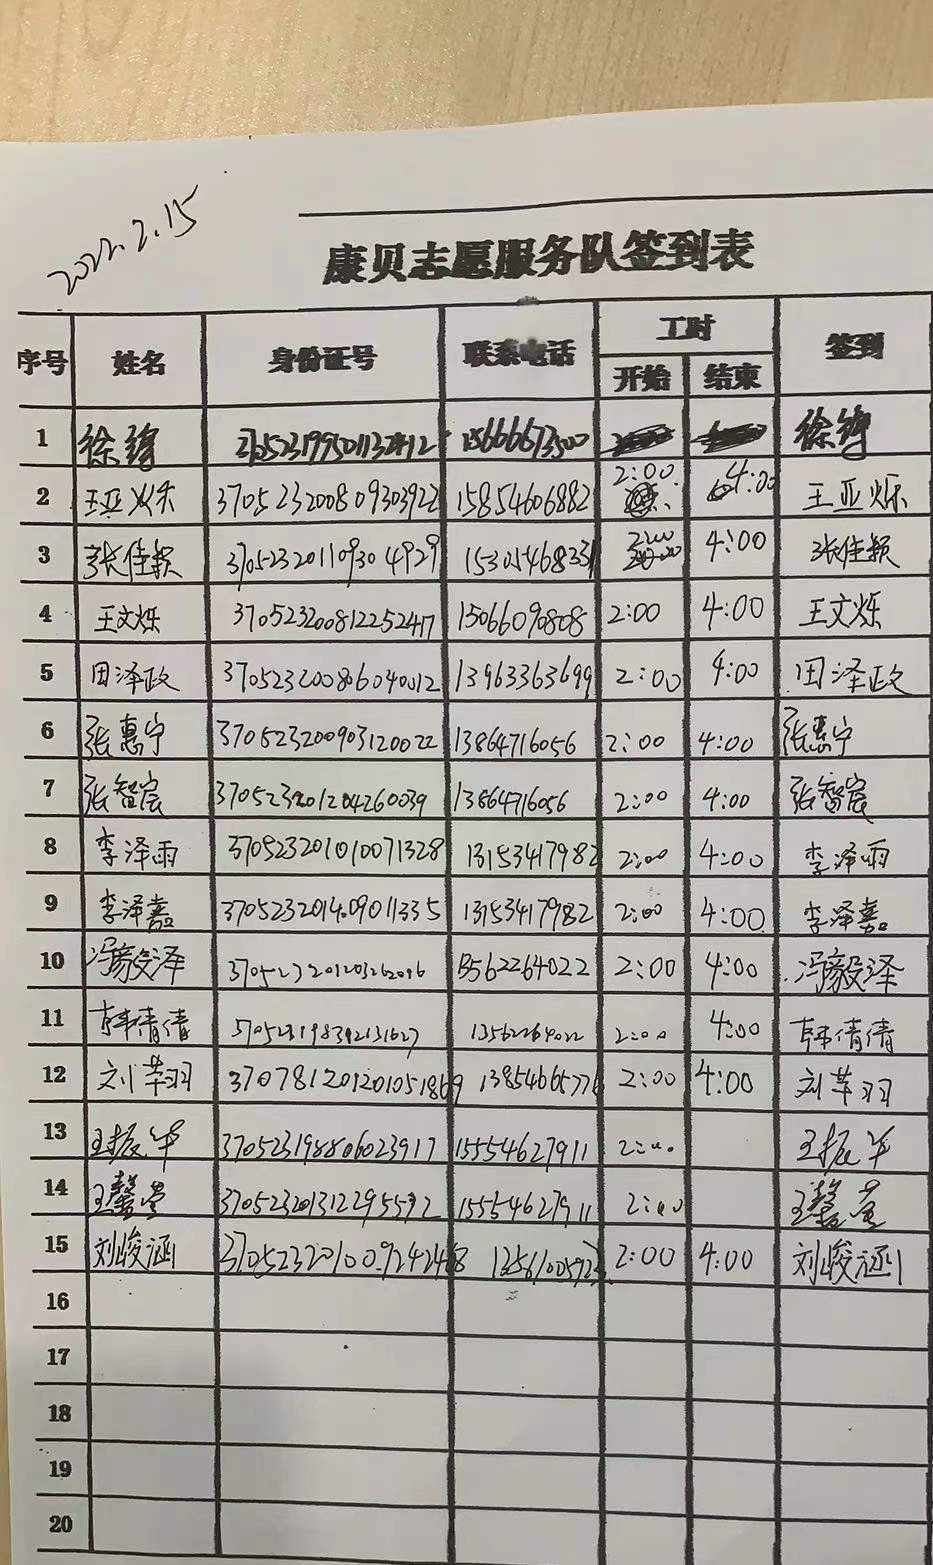 2022.2.15
康贝志愿服务队签到表
序号 姓名 身份证号 联系电话 工时 签到
开始 结束
1
2 王亚烁 370523200809303922 15854606882 2:00 4:00 王亚烁
3 张佳颖 370523201109304929 2:00 4:00 张佳颖
4 王文烁 370523200812252417 15066090808 2:00 4:00 王文烁
5 田泽政 370523200806040012 13963363699 2:00 4:00 田泽政
6 张惠宁 370523200903120022 13864716056 2:00 4:00 张惠宁
7 张智宸 370523201204260039 13864716056 2:00 4:00 张智宸
8 李泽雨 370523201010071328 13153417982 2:00 4:00 李泽雨
9 李泽嘉 370523201409011335 13153417982 2:00 4:00 李泽嘉
10 冯毅泽 13562264022 2:00 4:00 冯毅泽
11 韩倩倩 13562264022 2:00 4:00 韩倩倩
12 刘芊羽 370781201201051869 2:00 4:00 刘芊羽
13 王振华 370523198806023917 15554627911 2:00 王振华
14 王馨萱 15554627911 2:00 王馨萱
15 刘峻涵 2:00 4:00 刘峻涵
16
17
18
19
20